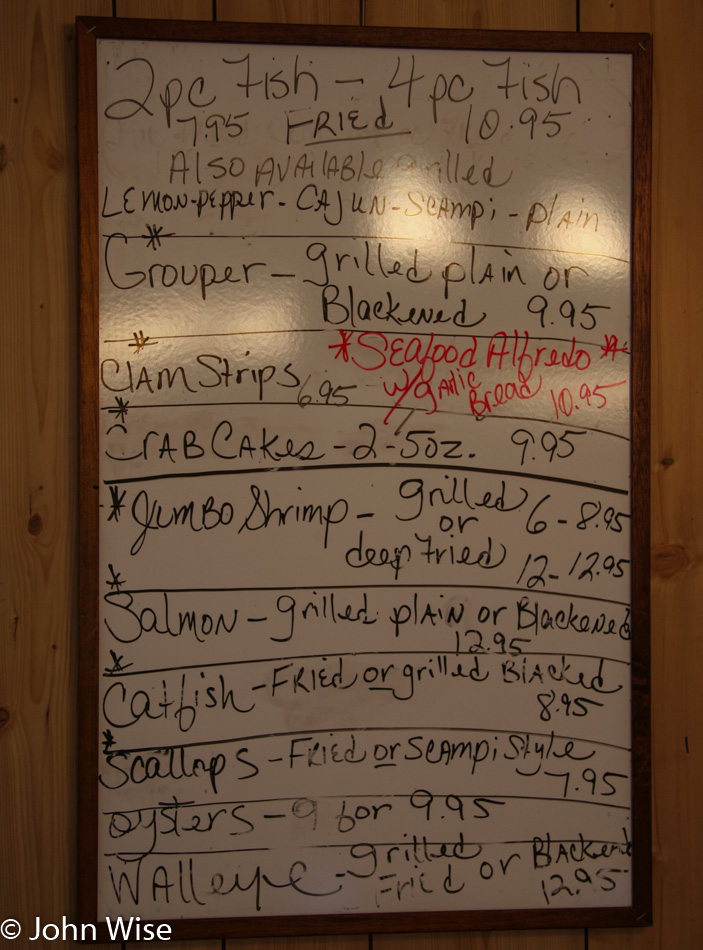 2pc Fish - 4pc Fish
7.95 FRIED 10.95
Also Available grilled
Lemon-pepper - CAJUN - Scampi - plain
* Grouper - grilled plain or
Blackened 9.95
* Clam Strips 6.95
*Seafood Alfredo *
w/ garlic Bread 10.95
* CRAB CAKes - 2 - 5oz. 9.95
* Jumbo Shrimp - grilled 6 - 8.95
or
deep Fried 12 - 12.95
* Salmon - grilled plain or Blackened
12.95
* Catfish - FRied or grilled Blacked
8.95
* Scallops - Fried or Scampi Style
7.95
oysters - 9 for 9.95
Walleye - grilled or Blackened
Fried 12.95
© John Wise